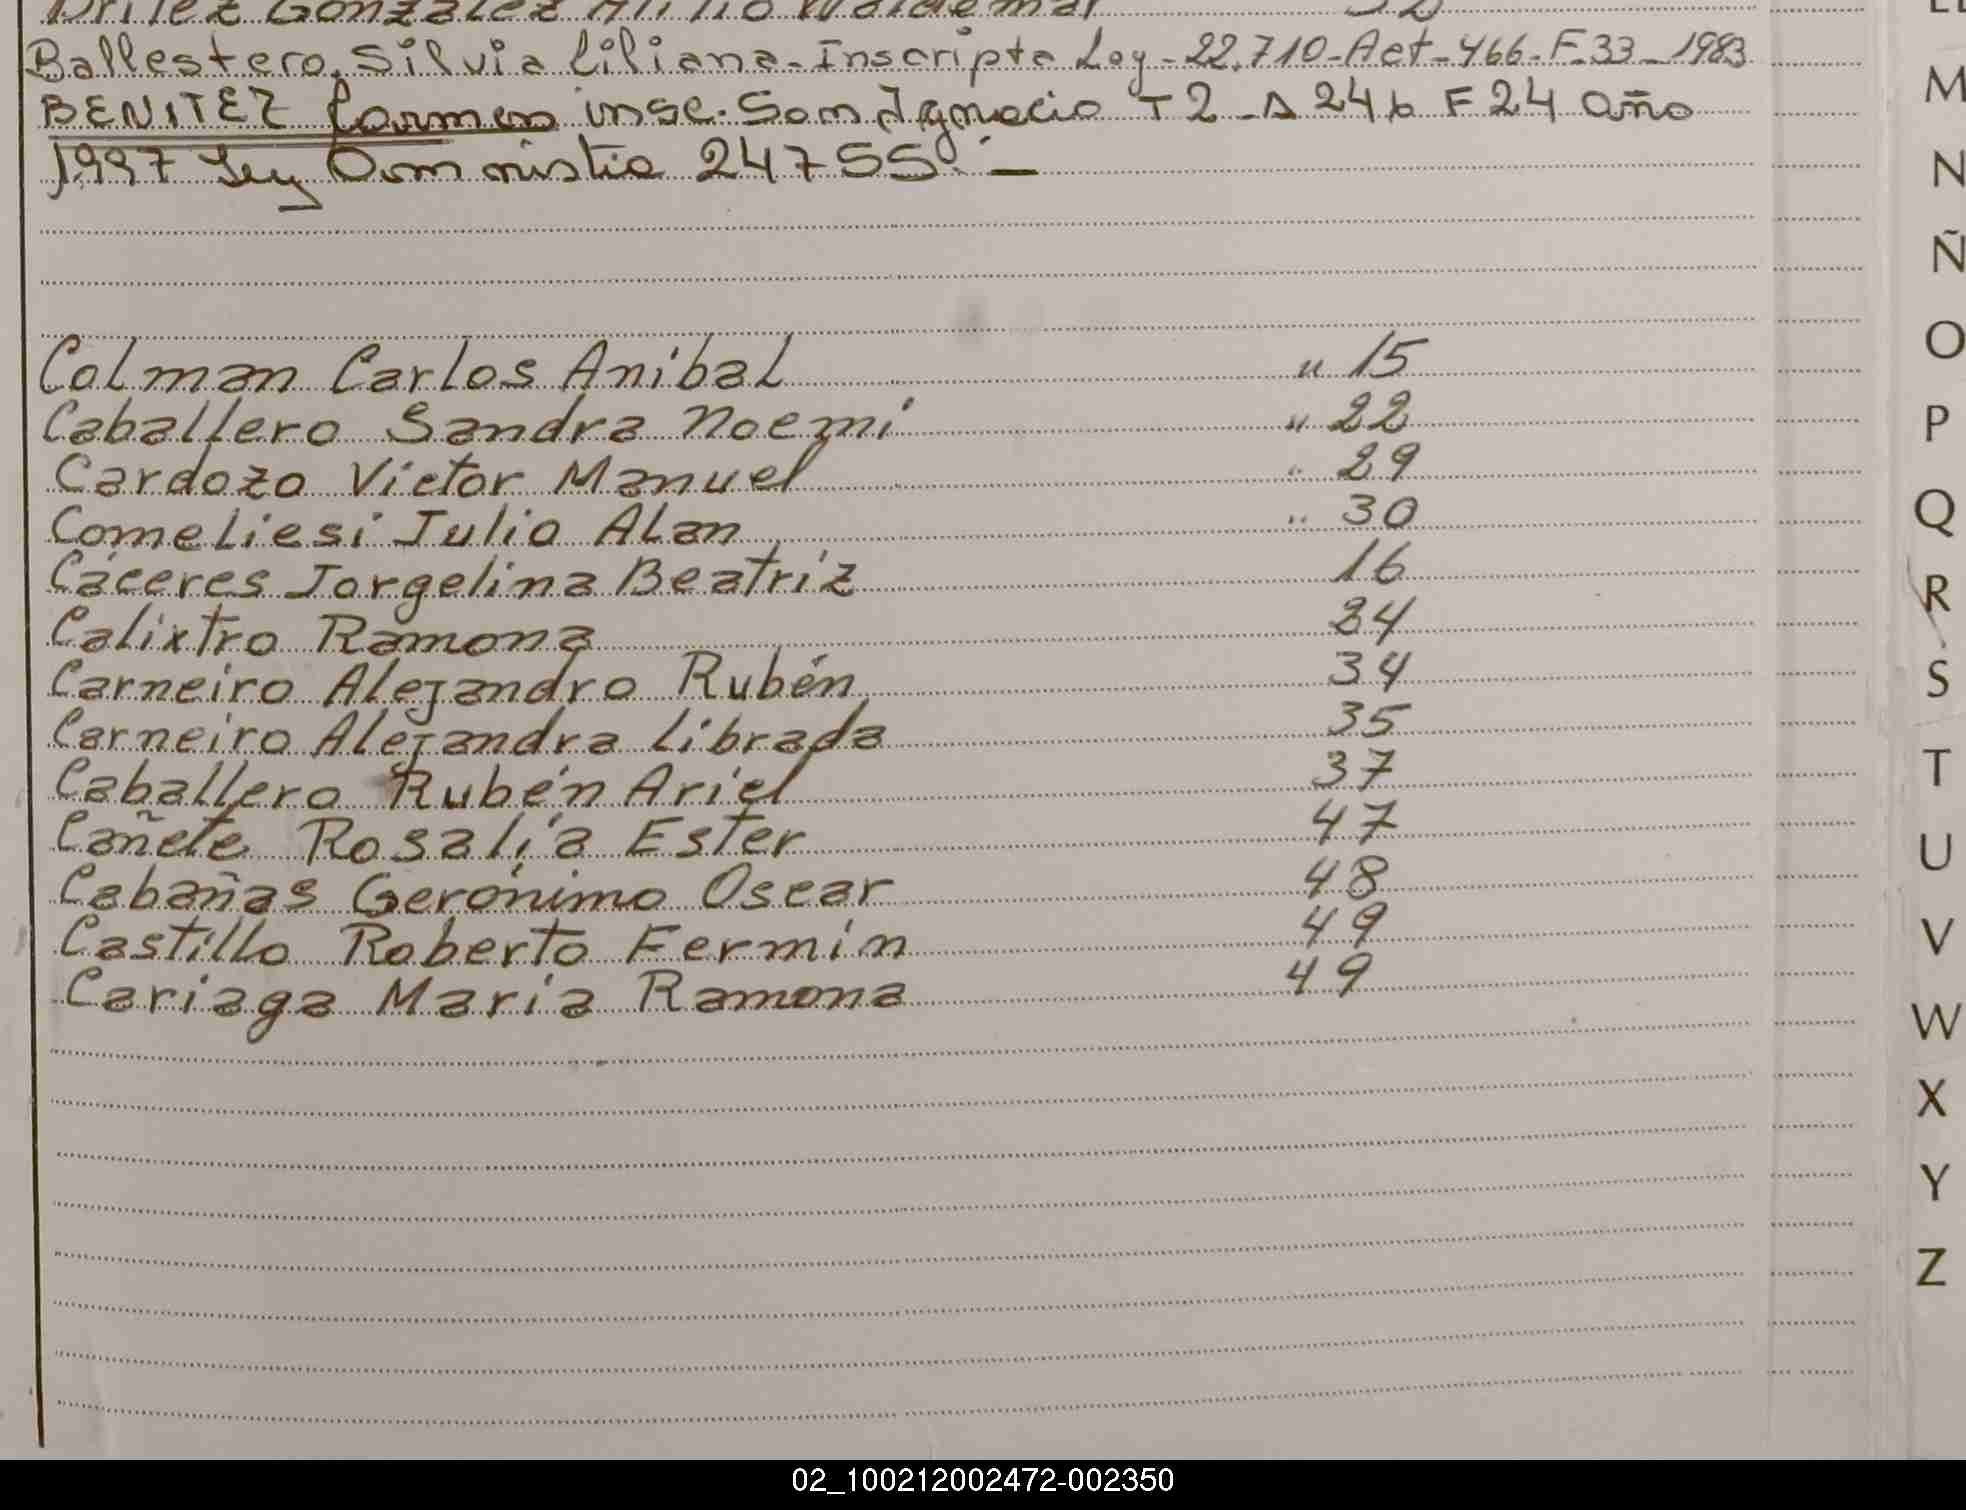 Britez González Waldemar 32
Ballestero, Silvia Liliana - Inscripta Ley - 22.710 - Act - 466 - F - 33 - 1983
BENITEZ Carmen insc. San Ignacio T 2 - A 246 F 24 año
1997 Ley Amnistia 24755. -
Colman Carlos Anibal " 15
Caballero Sandra Noemi " 22
Cardozo Victor Manuel " 29
Comeliesi Julio Alan " 30
Cáceres Jorgelina Beatriz 16
Calixtro Ramona 24
Carneiro Alejandro Rubén 34
Carneiro Alejandra Librada 35
Caballero Rubén Ariel 37
Cañete Rosalía Ester 47
Cabañas Gerónimo Oscar 48
Castillo Roberto Fermín 49
Cariaga María Ramona 49
M
N
Ñ
O
P
Q
R
S
T
U
V
W
X
Y
Z
02_100212002472-002350